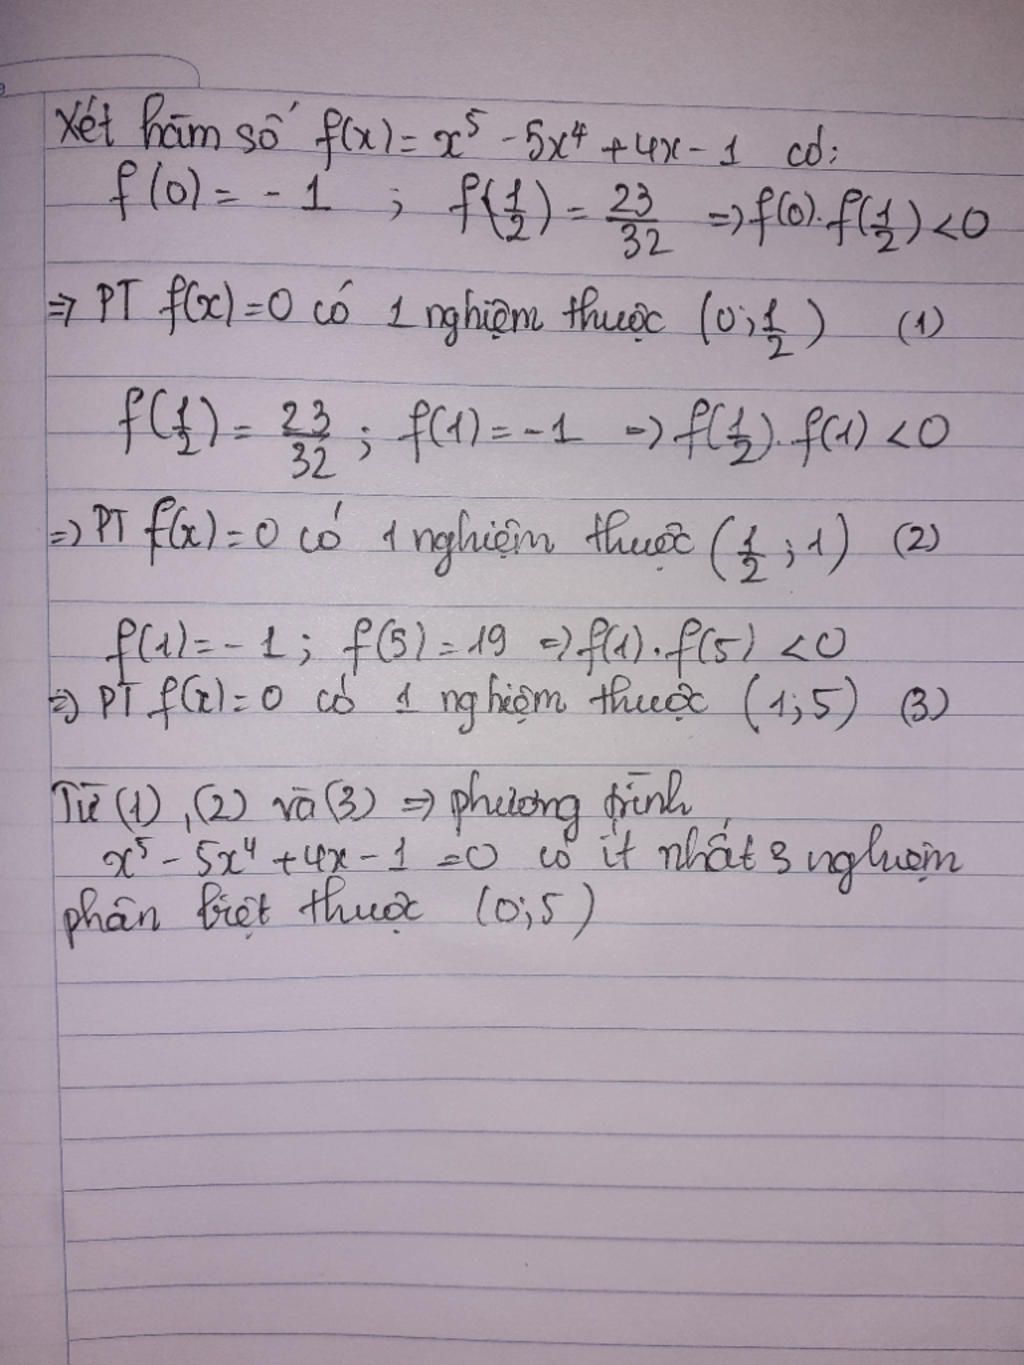 Xét hàm số f(x) = x⁵ - 5x⁴ + 4x - 1 có:
f(0) = - 1 ; f(1/2) = 23/32 => f(0). f(1/2) < 0
=> PT f(x) = 0 có 1 nghiệm thuộc (0; 1/2) (1)
f(1/2) = 23/32 ; f(1) = - 1 => f(1/2). f(1) < 0
=> PT f(x) = 0 có 1 nghiệm thuộc (1/2 ; 1) (2)
f(1) = - 1 ; f(5) = 19 => f(1). f(5) < 0
=> PT f(x) = 0 có 1 nghiệm thuộc (1; 5) (3)
Từ (1), (2) và (3) => phương trình
x⁵ - 5x⁴ + 4x - 1 = 0 có ít nhất 3 nghiệm
phân biệt thuộc (0; 5)